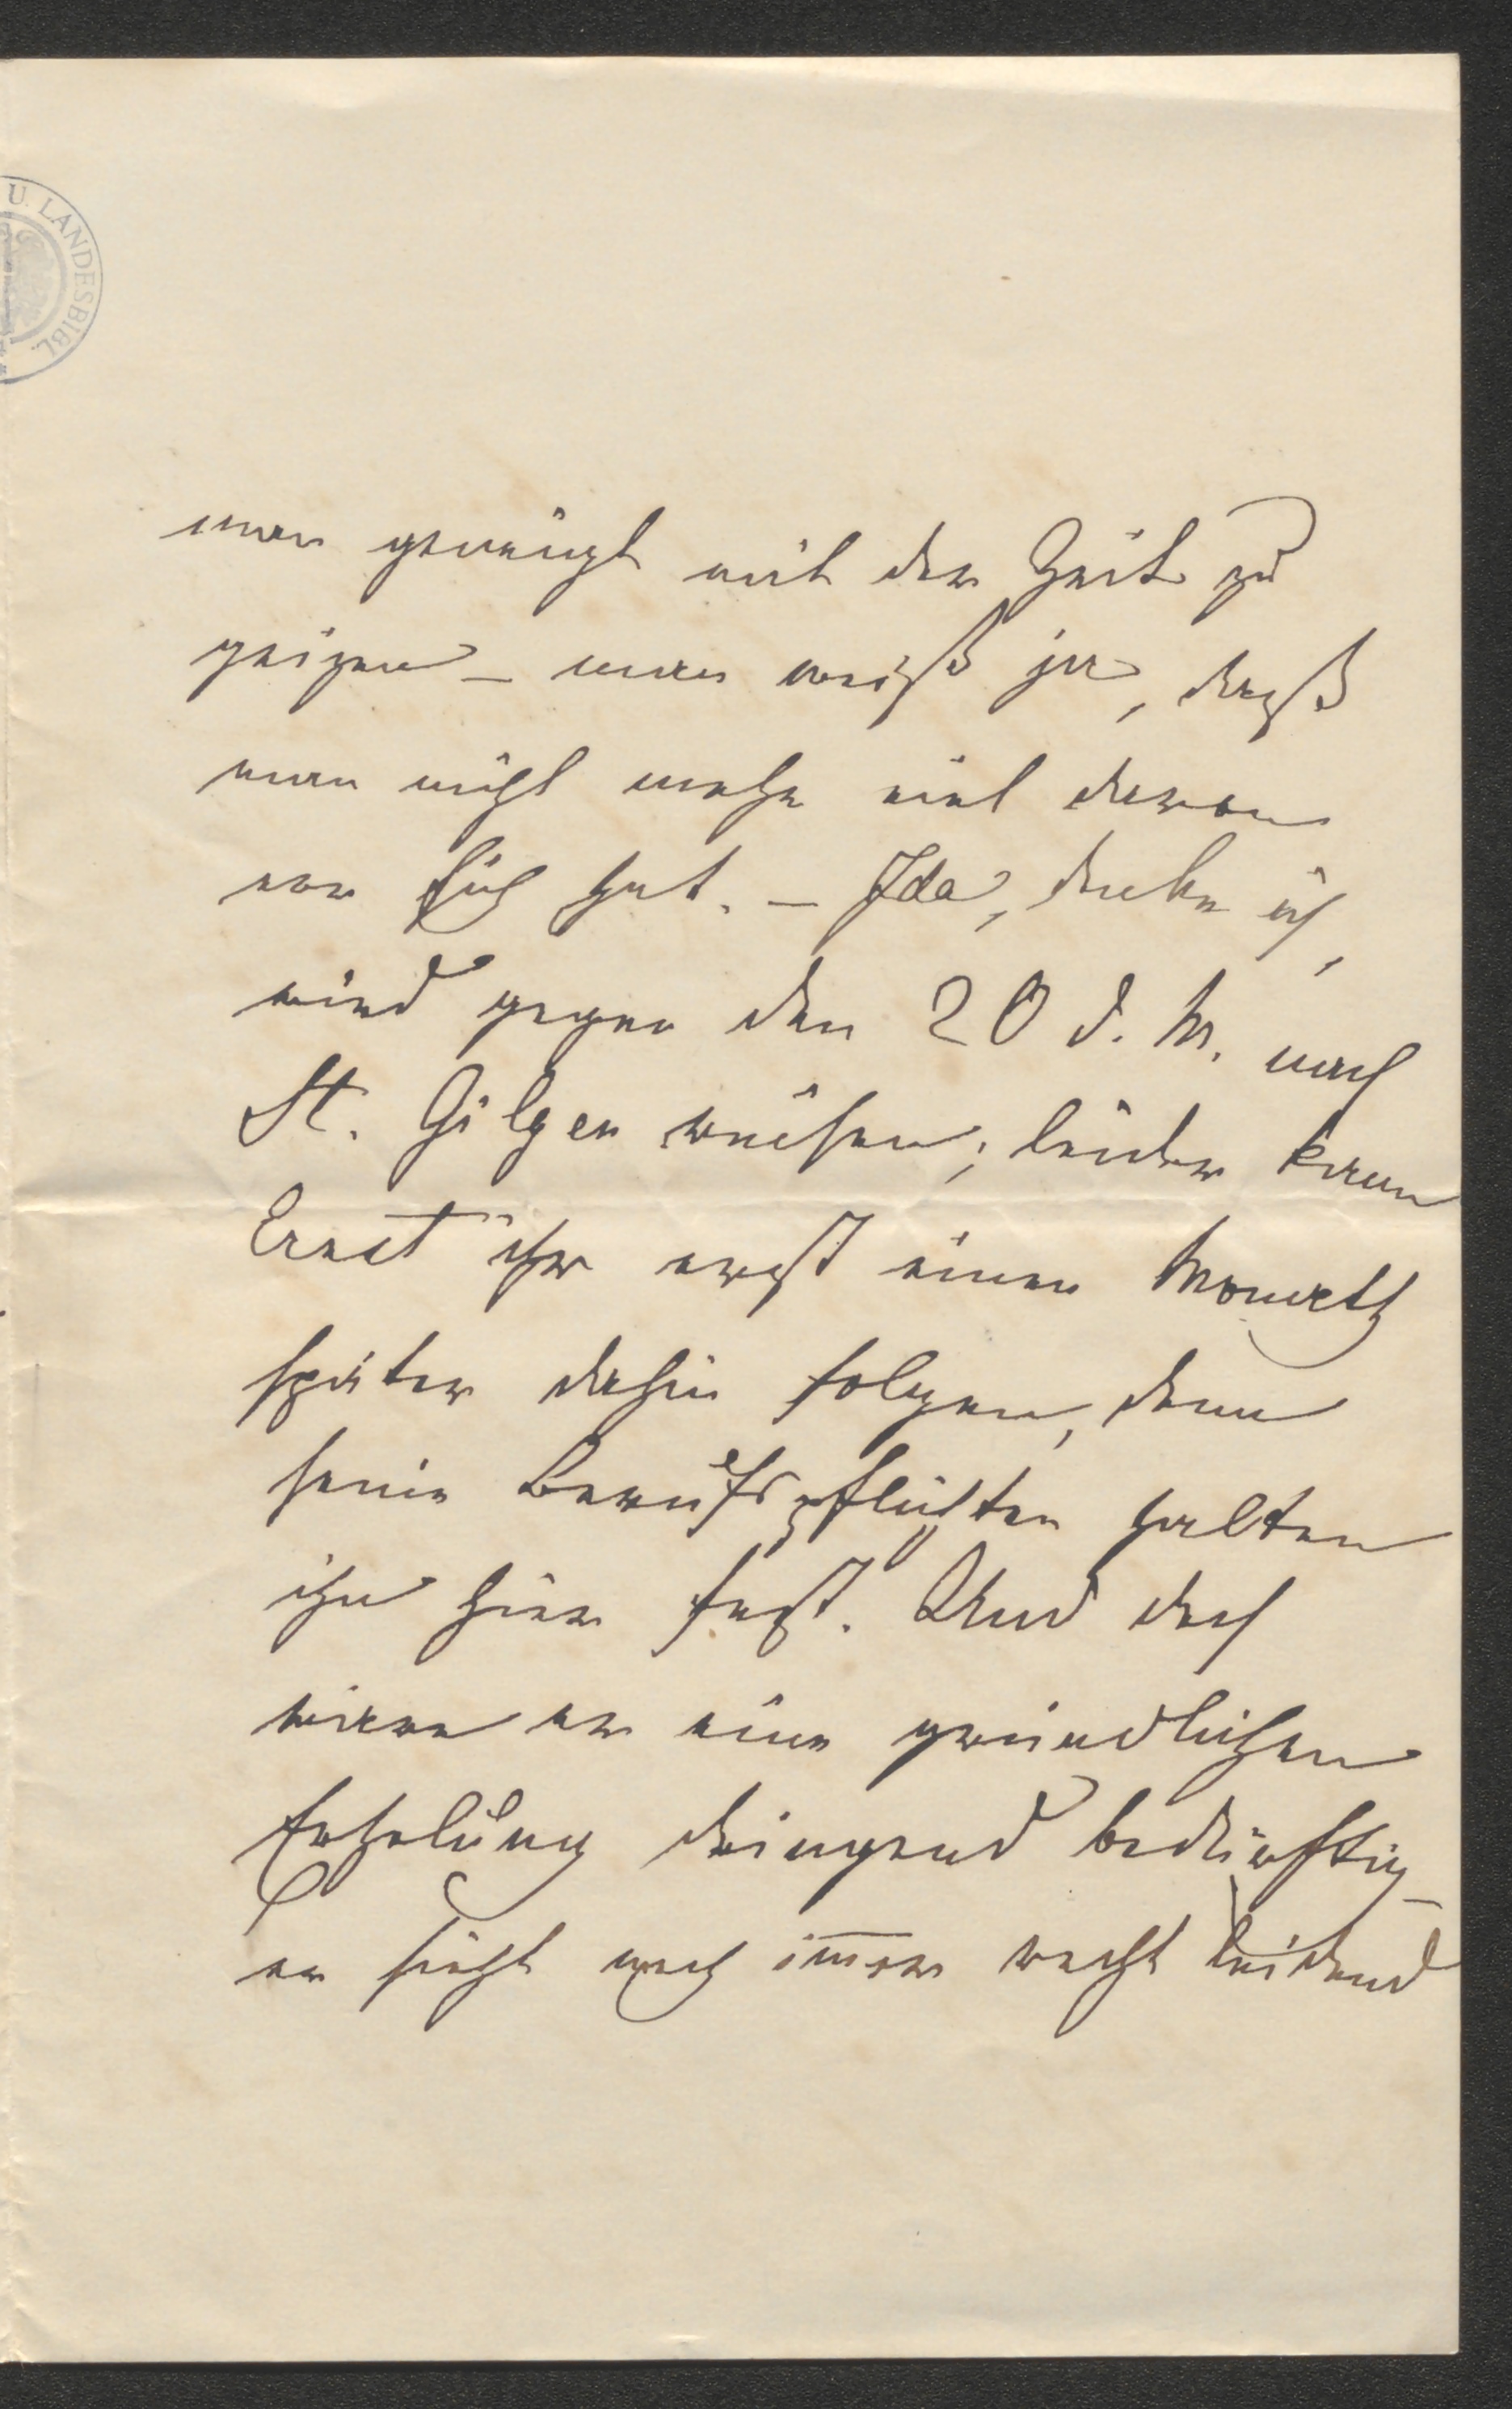 U. LANDESBIBL.
man geneigt mit der Zeit zu
geizen – man weiß ja, daß
man nicht mehr viel davon
vor sich hat. – Ida, denke ich,
wird gegen den 20 d. M. nach
St. Gilgen reisen; leider kann
Ernst ihr erst einen Monath
später dahin folgen, denn
seine Berufspflichten halten
ihn hier fest. Und doch
wäre er einer gründlichen
Erholung dringend bedürftig –
er sieht noch immer recht leidend